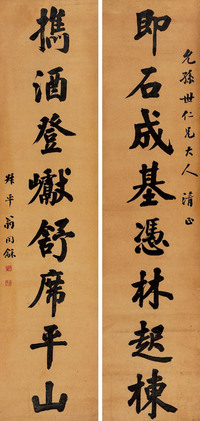 即石成基憑林起棟
允孫世仁兄大人清正
攜酒登巘舒席平山
翁同龢